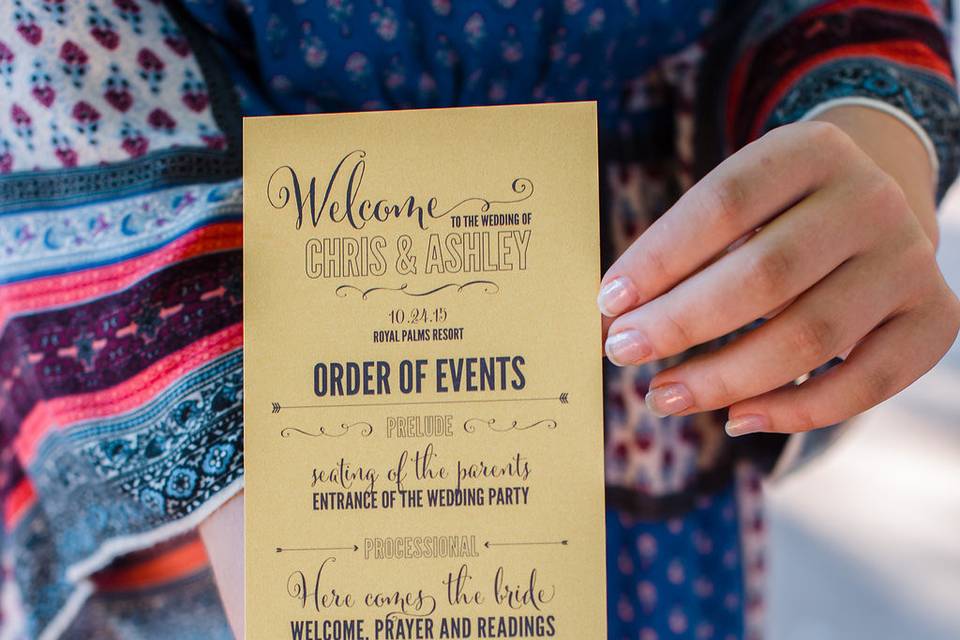 Welcome TO THE WEDDING OF
CHRIS & ASHLEY
10.24.15
ROYAL PALMS RESORT
ORDER OF EVENTS
PRELUDE
seating of the parents
ENTRANCE OF THE WEDDING PARTY
PROCESSIONAL
Here comes the bride
WELCOME, PRAYER AND READINGS